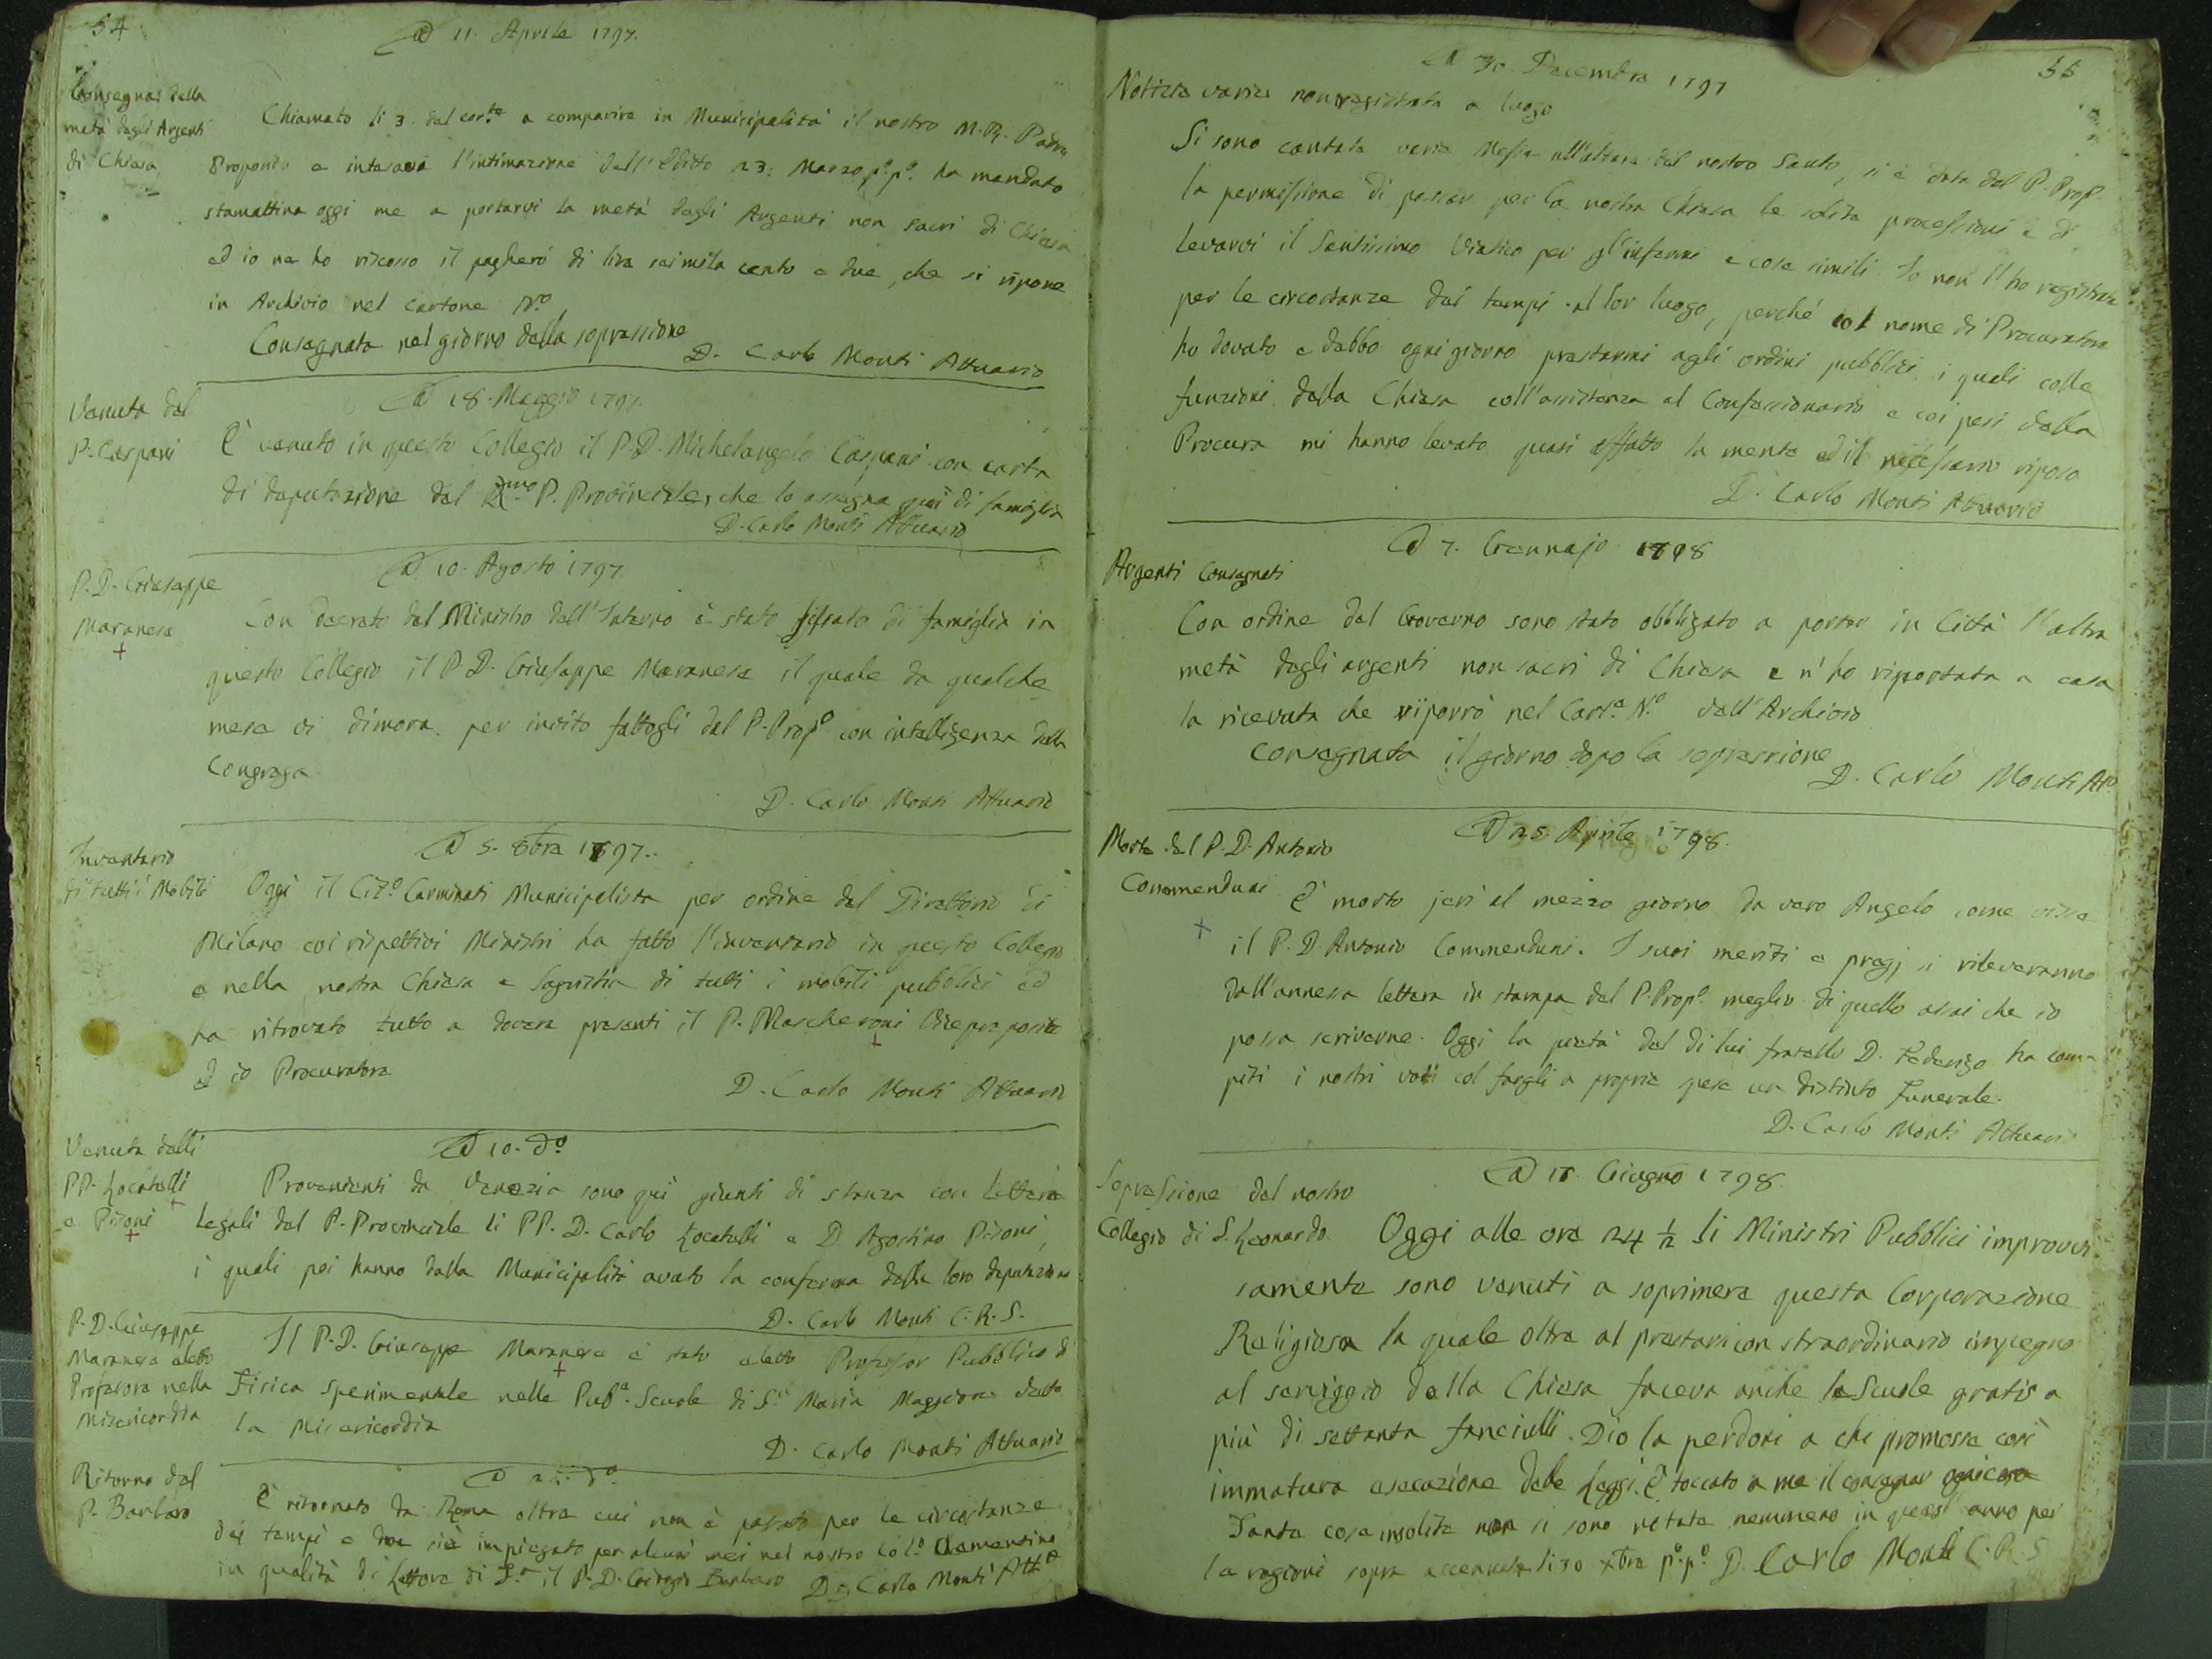 54
A 11. Aprile 1797.
Consegna della
metà degli Argenti
di Chiesa
Chiamato li 3 del cor.te a comparire in Municipalità il nostro M.R. Padre
Proposto e intesavi l'intimazione dell'Editto 23: Marzo p.o p.o ha mandato
stamattina oggi me a portarvi la metà degli Argenti non sacri di Chiesa
ed io ne ho riscosso il pagherò di lire seimila cento e due, che si ripone
in Archivio nel Cartone N.o
Consegnata nel giorno della sopressione
D. Carlo Monti Attuario
A 18. Maggio 1797.
Venuta del
P. Caspani
È venuto in questo Collegio il P.D. Michelangelo Caspani con carta
di deputazione del R.mo P. Provinciale, che lo assegna quì di famiglia
D. Carlo Monti Attuario
A 10. Agosto 1797.
P. D. Giuseppe
Maranese
+
Con decreto del Ministro dell'Interno è stato fissato di famiglia in
questo Collegio il P. D. Giuseppe Maranese il quale da qualche
mese vi dimora per invito fattogli dal P. Prop.o con intelligenza della
Congrega
D. Carlo Monti Attuario
A 5. 8bre 1797.
Inventario
di tutti i Mobili
Oggi il Citt.o Carminati Municipalista per ordine del Direttorio di
Milano coi rispettivi Ministri ha fatto l'inventario in questo Collegio
e nella nostra Chiesa e Sagristia di tutti i mobili pubblici ed
ha ritrovato tutto a dovere presenti il P. Mascheroni Vicepreposito
+
ed io Procuratore
D. Carlo Monti Attuario
A 10. d.o
Venuta delli
PP. Locatelli
+
e Pisoni
+
Provenienti da Venezia sono quì giunti di stanza con Lettere
legali del P. Provinciale li PP. D. Carlo Locatelli e D. Agostino Pisoni,
i quali poi hanno dalla Municipalità avuto la conferma della loro deputazione
D. Carlo Monti C.R.S.
P. D. Giuseppe
Maranese eletto
Professore nella
Misericordia
Il P. D. Giuseppe Maranese è stato eletto Professor Pubblico di
+
Fisica sperimentale nelle Pub.e Scuole di S.a Maria Maggiore detto
la Misericordia
D. Carlo Monti Attuario
Ritorno del
P. Barbaro
È ritornato da Roma oltre cui non è passato per le circostanze
dei tempi e dove si è impiegato per alcuni mesi nel nostro Col.o Clementino
in qualità di Lettore di il P. D. Giorgio Barbaro D. Carlo Monti Att.o
55
A 30. Decembre 1797
Notizie varie non registrate a luogo
Si sono cantate varie Messe all'altare del nostro Santo, si è data dal P. Prop.
la permissione di passar per la nostra Chiesa le solite processioni e di
levarvi il Santissimo Viatico per gl'infermi e cose simili. Io non l'ho registrate
per le circostanze dei tempi al lor luogo, perché col nome di Procuratore
ho dovuto e debbo ogni giorno prestarmi agli ordini pubblici i quali colle
funzioni della Chiesa coll'assistenza al Confessionario e coi pesi della
Procura mi hanno levato quasi affatto la mente ed il necessario riposo
D. Carlo Monti Attuario
A 7. Gennajo 1798
Argenti Consegnati
Con ordine del Governo sono stato obbligato a portar in Città l'altra
metà degli argenti non sacri di Chiesa e n'ho riportata a casa
la ricevuta che riporrò nel Cart.e N.o dell'Archivio
Consegnata il giorno dopo la sopressione
D. Carlo Monti At.o
A 25. Aprile 1798.
Morte del P. D. Antonio
Commenduni
+
È morto jeri al mezzo giorno da vero Angelo come visse
il P. D. Antonio Commenduni. I suoi meriti e pregj si rileveranno
dall'annessa lettera in stampa del P. Prop.o meglio di quello assai che io
possa scriverne. Oggi la pietà del di lui fratello D. Federigo ha com-
piti i nostri voti col fargli a proprie spese un distinto Funerale.
D. Carlo Monti Attuario
A 11. Giugno 1798
Sopressione del nostro
Collegio di S. Leonardo
Oggi alle ore 24 1/2 li Ministri Pubblici improvvi-
samente sono venuti a soprimere questa Corporazione
Religiosa la quale oltre al prestarsi con straordinario impegno
al serviggio della Chiesa faceva anche le Scuole gratis a
più di settanta fanciulli. Dio la perdoni a chi promosse così
immatura esecuzione delle Leggi. È toccato a me il consegnar ogni cosa
Tante cose insolite non si sono notate nemmeno in quest'anno per
le ragioni sopra accennate li 30 Xbre p.o p.o D. Carlo Monti C.R.S.